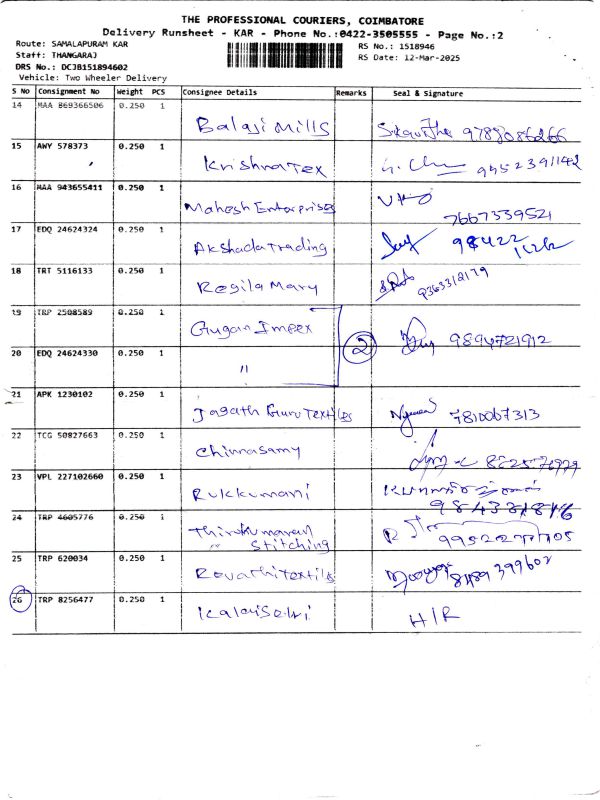 THE PROFESSIONAL COURIERS, COIMBATORE
Delivery Runsheet - KAR - Phone No.:0422-3505555 - Page No.:2
Route: SAMALAPURAM KAR
Staff: THANGARAJ
DRS No.: DCJB151894602
Vehicle: Two Wheeler Delivery
RS No.: 1518946
RS Date: 12-Mar-2025
S No Consignment No Weight PCS Consignee Details Remarks Seal & Signature
14 MAA 869366506 0.250 1 Balaji Mills
15 AWY 578373 0.250 1 Krishna Tex
16 MAA 943655411 0.250 1 Mahesh Enterprises 7667339521
17 EDQ 24624324 0.250 1 Akshada Trading
18 TRT 5116133 0.250 1 Regila Mary 9363318179
19 TRP 2508589 0.250 1 Gugan Impex 2 9894721912
20 EDQ 24624330 0.250 1 "
21 APK 1230102 0.250 1 Jagath Guru Textiles 7810067313
22 TCG 50827663 0.250 1 Chinnasamy
23 VPL 227102660 0.250 1 Rukkumani
24 TRP 4605776 0.250 1 Thirukumaran Stitching
25 TRP 620034 0.250 1 Revathi Textiles
26 TRP 8256477 0.250 1 Kalaiselvi H/R